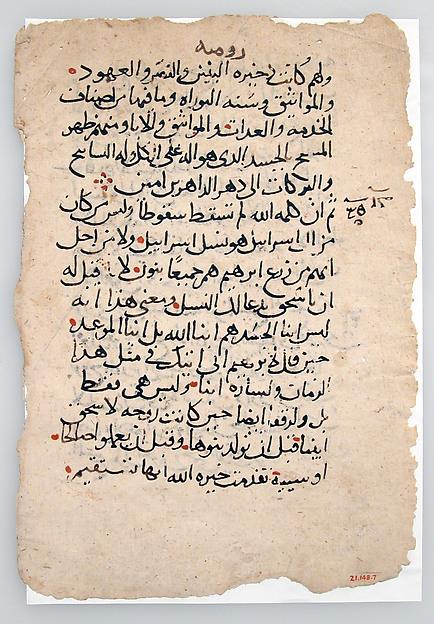 رومىه
ولهم كانت خيره البنين والعهود
والمواثيق وسنه التوراه وما فيها من اصناف
الخدمه والعدات والمواثيق والابا ومنهم ظهر
المسيح بالجسد الذي هو اله على الكل وله التسابيح
والبركات الى دهر الداهرين امين
ثم ان كلمه الله لم تسقط سقوطا وليس من كان
من ال اسرايل هو نسل اسرايل ولا من اجل
انهم من زرع ابرهيم هم جميعا بنون لانه قيل له
ان باسحق يدعا لك النسل ومعنى هذا انه
ليس ابنا الجسد هم ابنا الله بل ابنا الموعد
حين قال اني اتيك في مثل هذا
الزمان ولساره ابنا وليس هي فقط
بل ورفقا ايضا حين كانت زوجه لاسحق
ابينا قبل ان تولد بنوها وقبل ان يعملوا صالحا
او سيية تقدمت خيره الله انها تستقيم
21.148.7